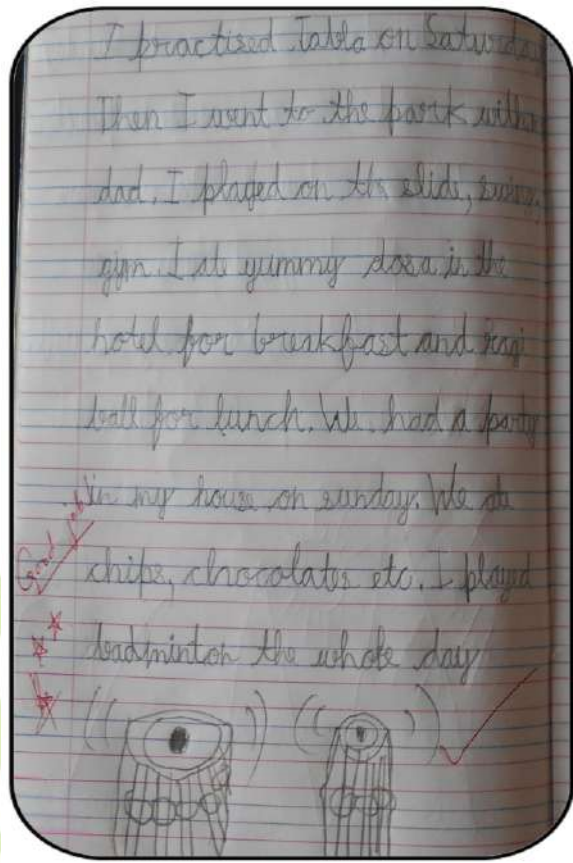 I practised Tabla on Saturday
Then I went to the park with
dad. I played on the slide, swing,
gym. I ate yummy dosa in the
hotel for breakfast and ragi
ball for lunch. We had a party
in my house on sunday. We ate
chips, chocolates etc. I played
badminton the whole day
Good job